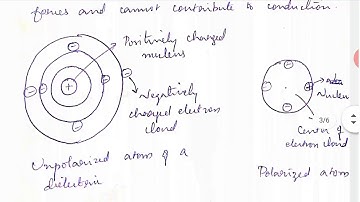 forces and cannot contribute to conduction.
Positively charged
nucleus
Negatively
charged electron
cloud
Unpolarized atom of a
dielectric
Nucleus
3/6
Center of
electron cloud
Polarized atom